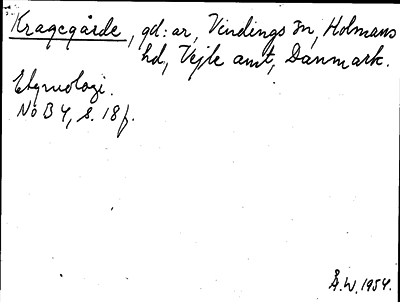 Kragegårde, gd:ar, Vindings sn, Holmans
hd, Vejle amt, Danmark.
Etymologi.
NoB 4, s. 18f.
Å.W. 1954.